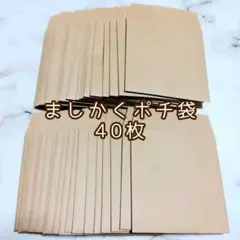 ましかくポチ袋
40枚